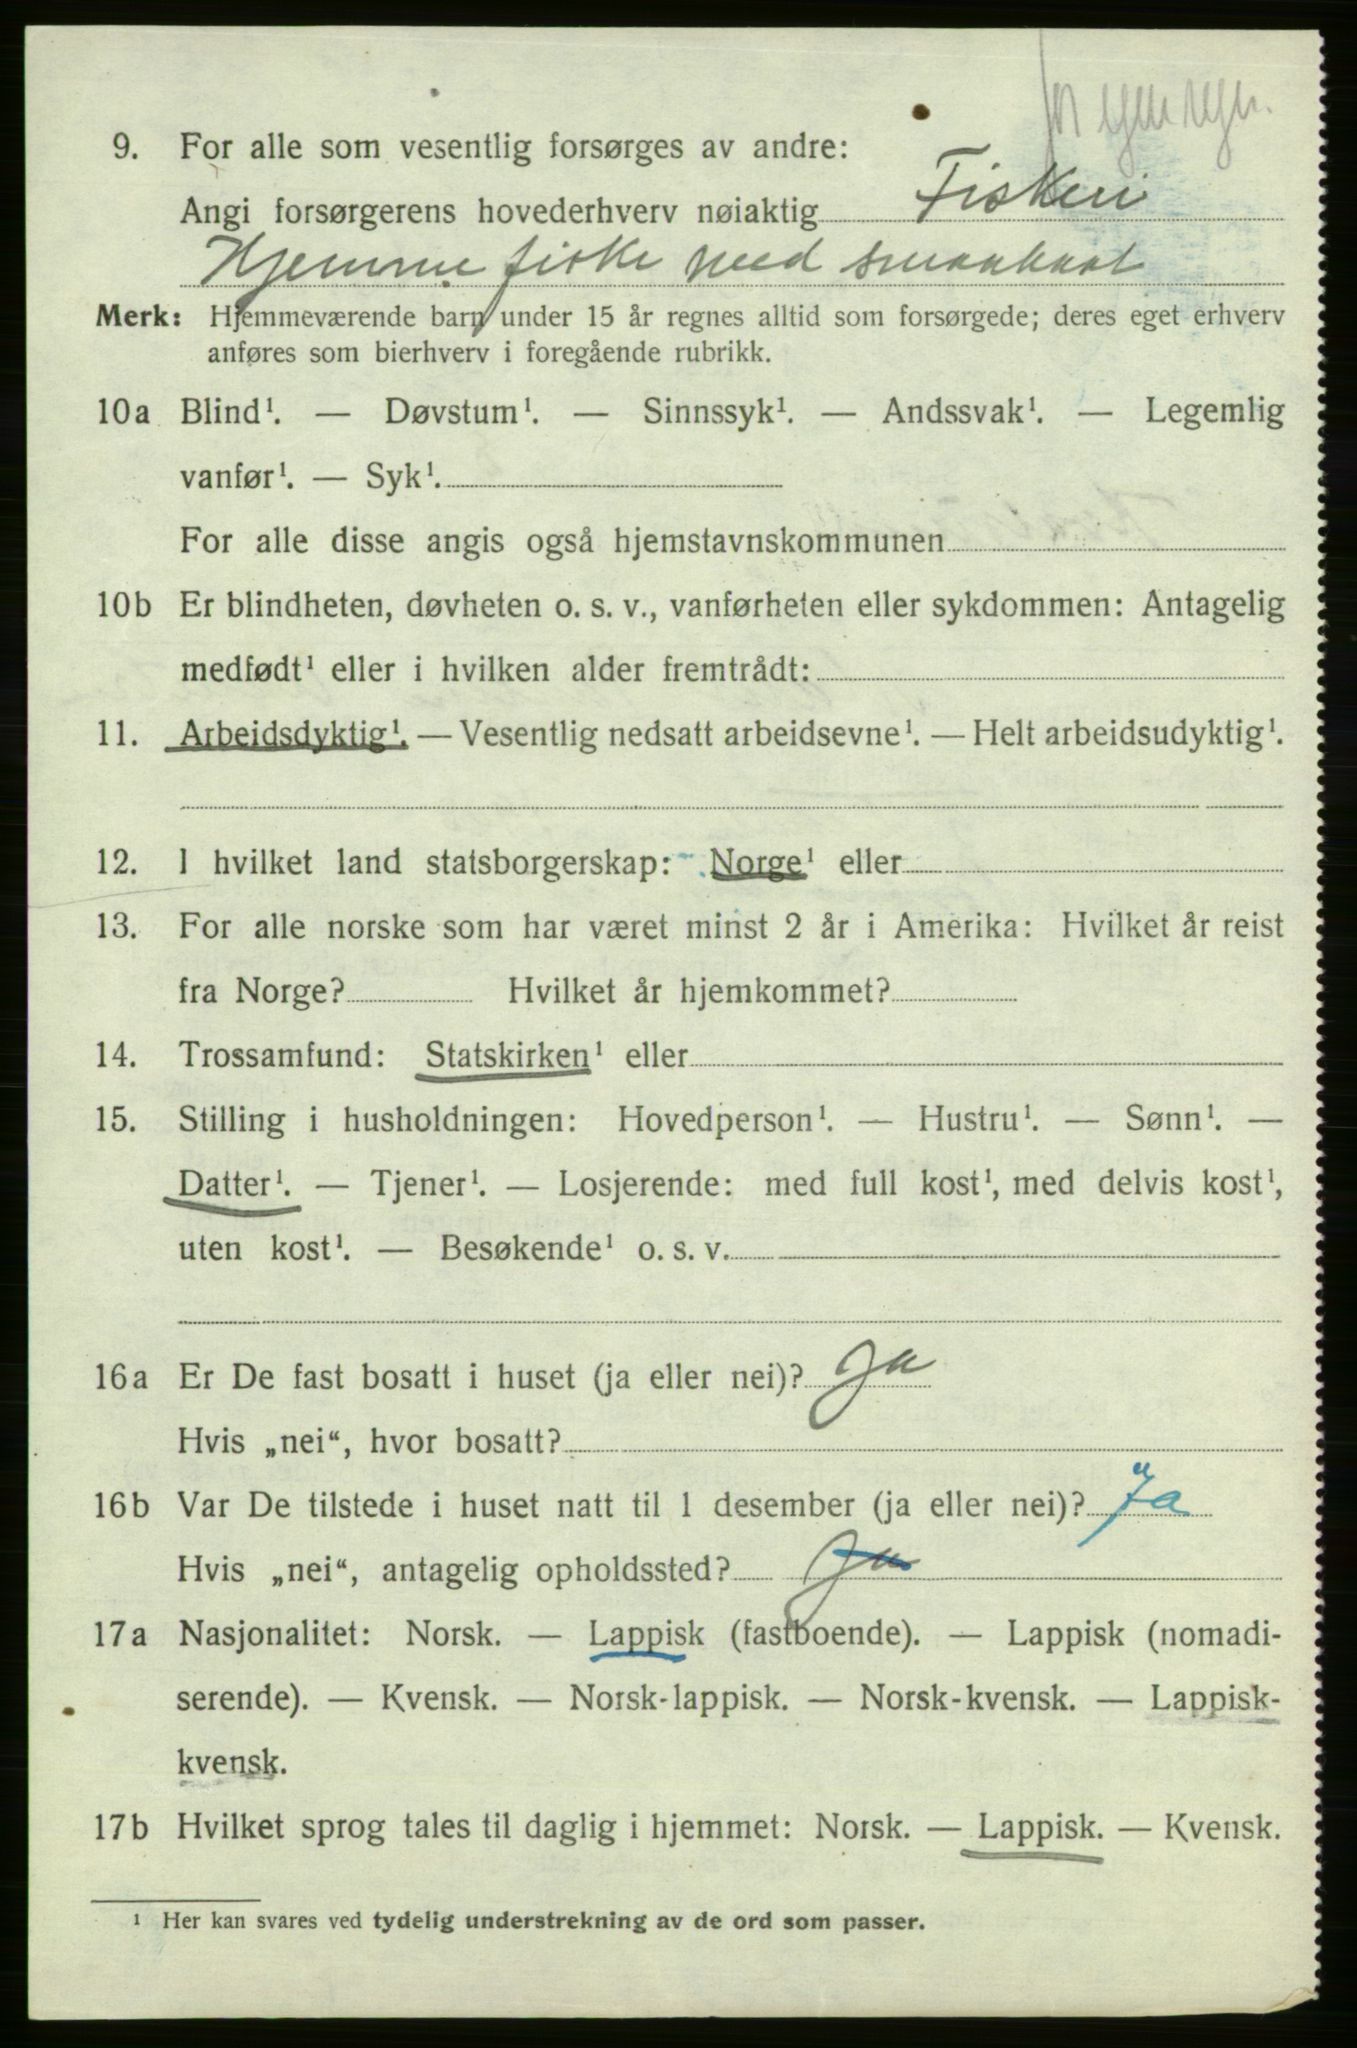 for egen regn.
9. For alle som vesentlig forsørges av andre:
Angi forsørgerens hovederhverv nøiaktig Fiskeri
Hjemme fiske med smaabaat
Merk: Hjemmeværende barn under 15 år regnes alltid som forsørgede; deres eget erhverv
anføres som bierhverv i foregående rubrikk.
10a Blind¹. — Døvstum¹. — Sinnssyk¹. — Andssvak¹. — Legemlig
vanfør¹. — Syk¹.
For alle disse angis også hjemstavnskommunen
10b Er blindheten, døvheten o. s. v., vanførheten eller sykdommen: Antagelig
medfødt¹ eller i hvilken alder fremtrådt:
11. Arbeidsdyktig¹. — Vesentlig nedsatt arbeidsevne¹. — Helt arbeidsudyktig¹.
12. I hvilket land statsborgerskap: Norge¹ eller
13. For alle norske som har været minst 2 år i Amerika: Hvilket år reist
fra Norge? Hvilket år hjemkommet?
14. Trossamfund: Statskirken¹ eller
15. Stilling i husholdningen: Hovedperson¹. — Hustru¹. — Sønn¹. —
Datter¹. — Tjener¹. — Losjerende: med full kost¹, med delvis kost¹,
uten kost¹. — Besøkende¹ o. s. v.
16a Er De fast bosatt i huset (ja eller nei)? Ja
Hvis „nei“, hvor bosatt?
16b Var De tilstede i huset natt til 1 desember (ja eller nei)? Ja
Hvis „nei“, antagelig opholdssted? Ja
17a Nasjonalitet: Norsk. — Lappisk (fastboende). — Lappisk (nomadi-
serende). — Kvensk. — Norsk-lappisk. — Norsk-kvensk. — Lappisk-
kvensk.
17b Hvilket sprog tales til daglig i hjemmet: Norsk. — Lappisk. — Kvensk.
¹ Her kan svares ved tydelig understrekning av de ord som passer.